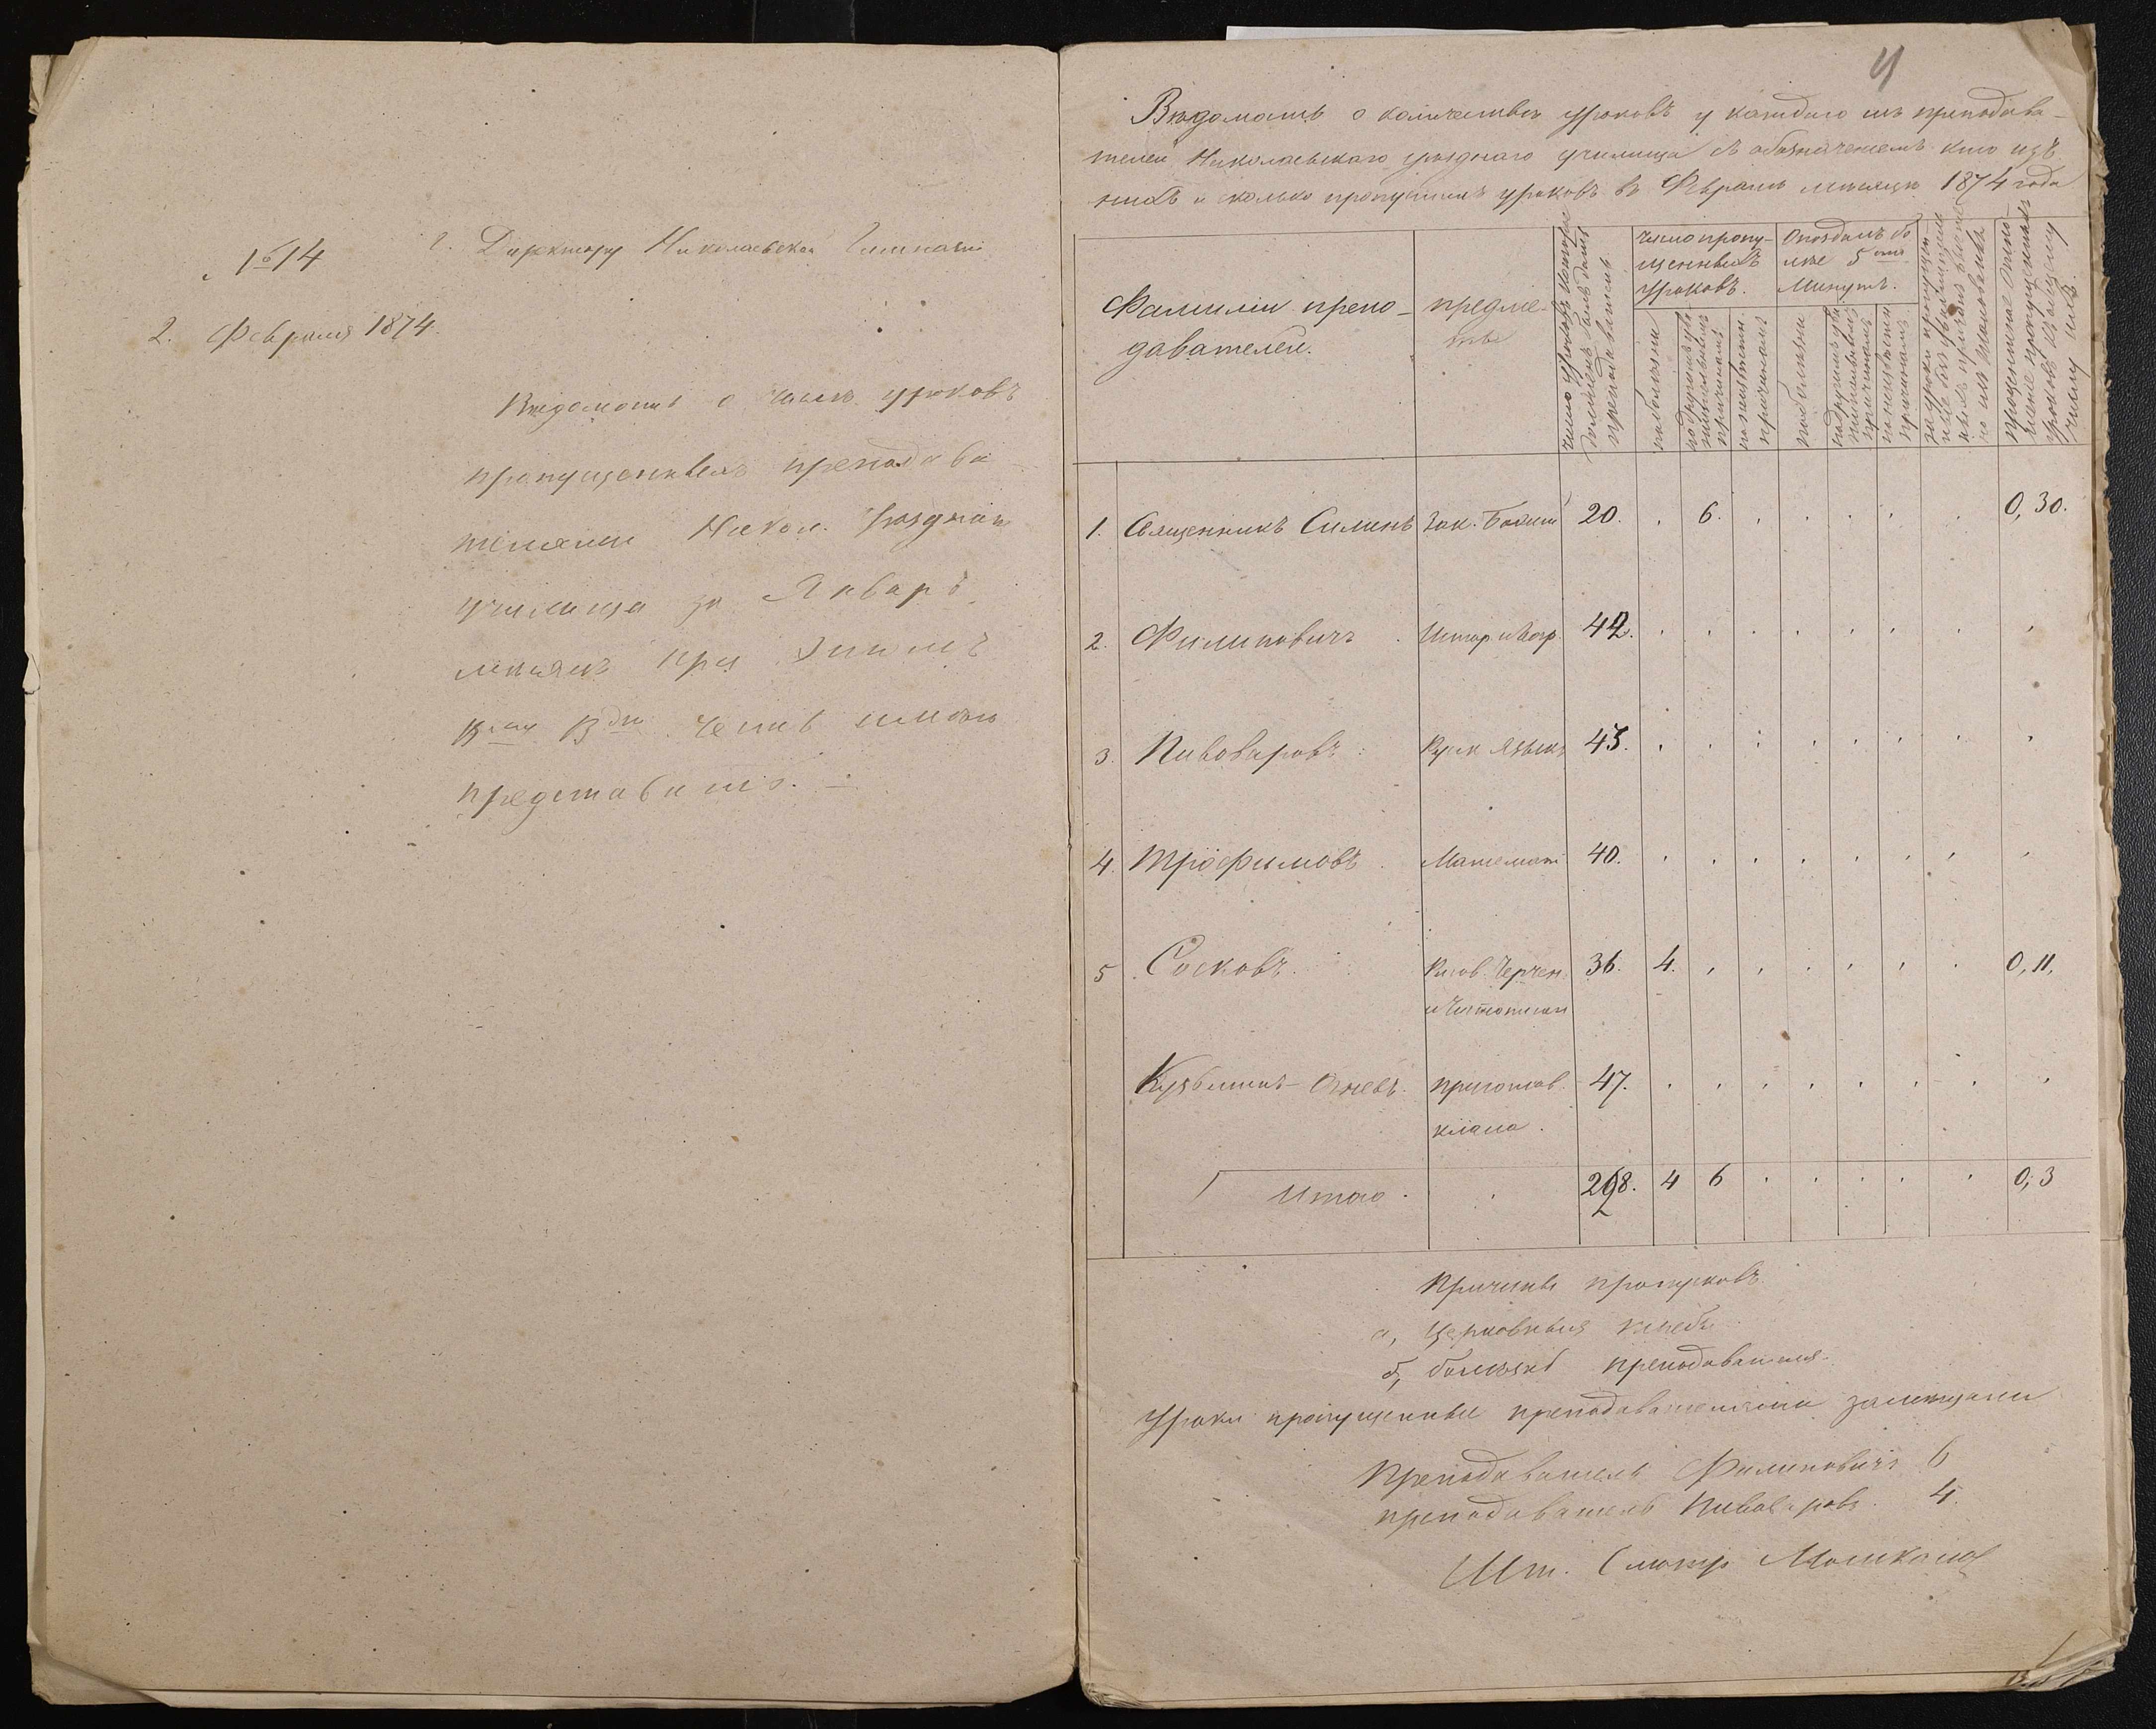 № 14
2. Февраля 1874.
г. Директору Николаевской Гимназіи
Вѣдомость о числѣ уроковъ
пропущенныхъ преподава
телями Никол. Уѣзднаго
училища за Январь
мѣсяцъ при этомъ
честь имѣю
представить. —
4
Вѣдомость о количествѣ уроковъ у каждаго изъ преподава-
телей Николаевскаго уѣзднаго училища съ обозначеніемъ кто изъ
нихъ и сколько пропустилъ уроковъ въ Февралѣ мѣсяцѣ 1874 года
Фамиліи препо-
давателей.
предме-
ты
число уроковъ которые
долженъ былъ дать
преподаватель
Число пропу-
щенныхъ
уроковъ.
по болѣзни
по другимъ ува-
жительнымъ
причинамъ
по неизвѣстн.
причинамъ
Опоздалъ бо
лѣе 5 ти
Минутъ.
по болѣзни
по другимъ ува
жительнымъ
причинамъ
по неизвѣстн
причинамъ
за уроки пропущен-
ные безъ уважитель
ныхъ причинъ
процентное отно-
шеніе пропущенныхъ
уроковъ къ общему
числу ихъ.
1. Священникъ Силинъ Зак. Божій 20. . 6. . . . . . 0,30.
2. Филиповичъ Истор. и Геогр. 42. . . . . . . . .
3. Пивоваровъ Русск Языкъ 43. . . . . . . . .
4. Трофимовъ Математ 40. . . . . . . . .
5 Сосковъ. Рисов. Черчен. 36. 4. . . . . . . 0,11.
и Чистописан
Кузьминъ-Огневъ. приготов. 47. . . . . . . . .
класса.
Итого. 228. 4 6 . . . . . 0,3
Причины пропусковъ
а, Церковныя требы
б, болѣзнь преподавателя.
Уроки пропущенные преподавателями замѣщали
Преподаватель Филиповичъ 6
преподаватель Пивоваровъ. 4.
Шт. Смотр